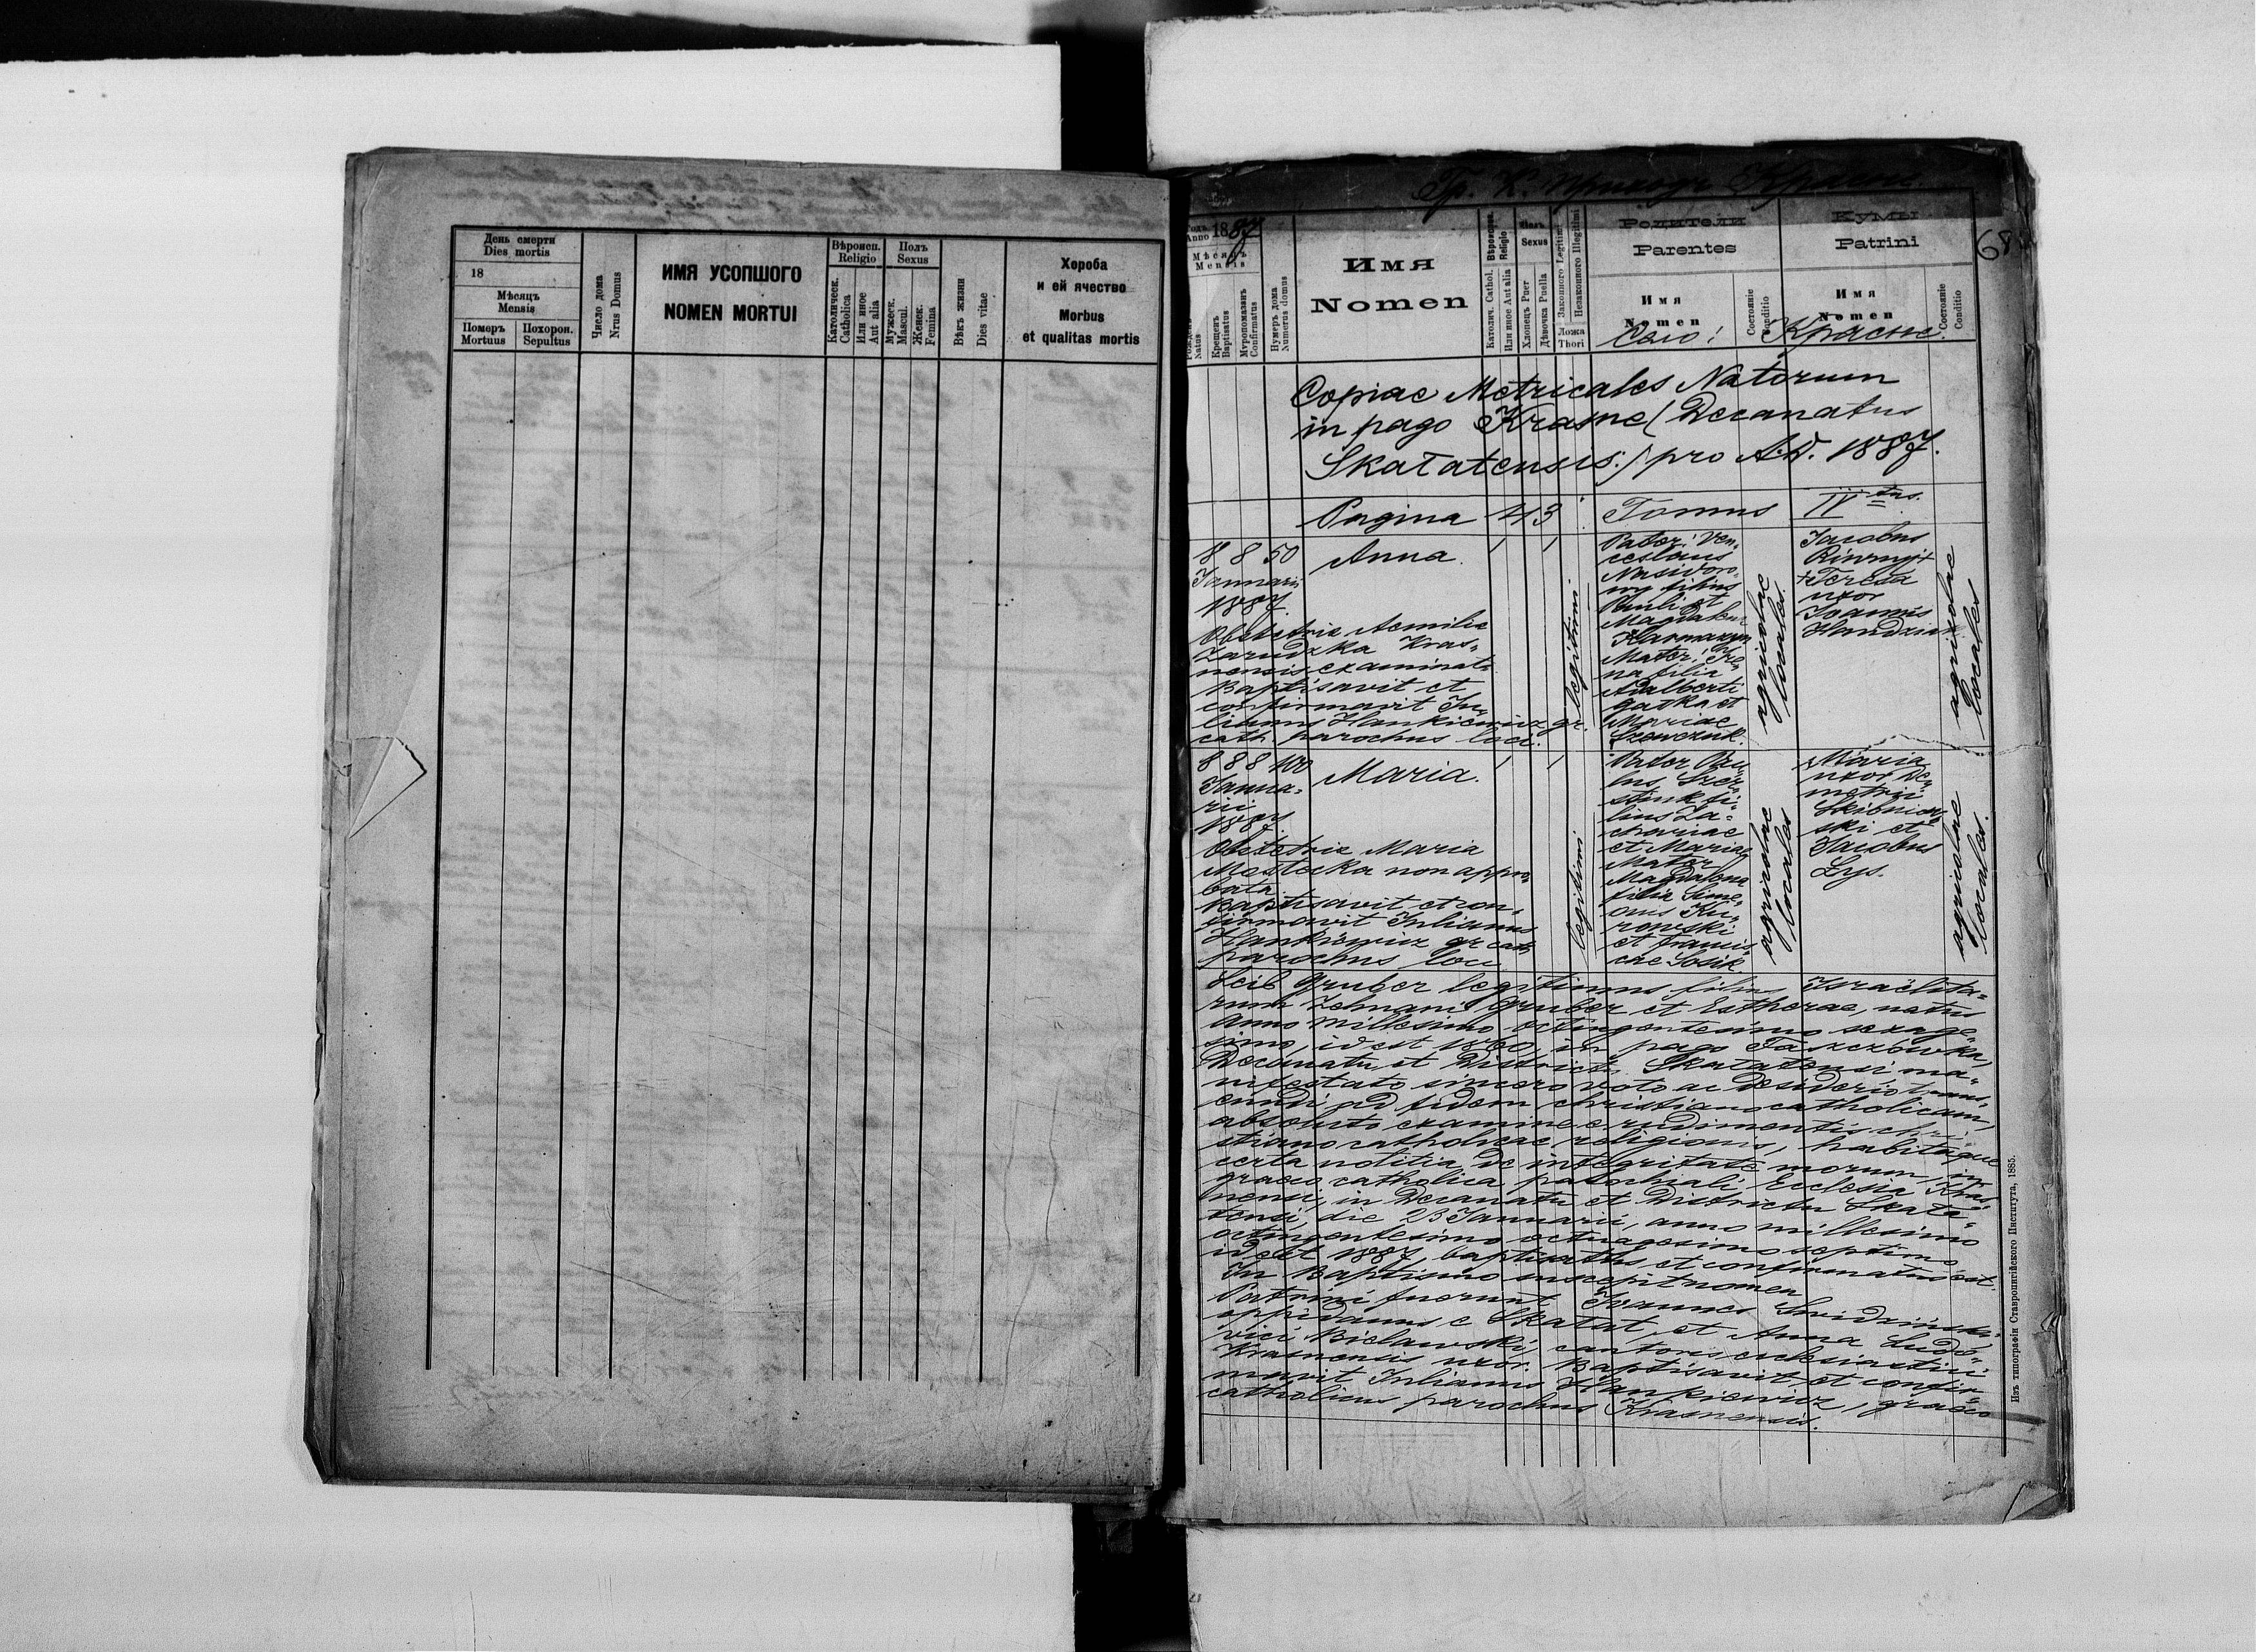 День смерти
Dies mortis
18
Мѣсяцъ
Mensis
Померъ
Mortuus
Похорон.
Sepultus
Число дома
Nrus Domus
ИМЯ УСОПШОГО
NOMEN MORTUI
Вѣроисп.
Religio
Католическ.
Catholica
Или иное
Aut alia
Полъ
Sexus
Мужеск.
Mascul.
Женск.
Femina
Вѣкъ жизни
Dies vitae
Хороба
и ей ячество
Morbus
et qualitas mortis
Гр. К. приходъ Красне.
68
Годъ
Anno 1887
Мѣсяцъ
Mensis
Natus
Крещенъ
Baptisatus
Мѵропомазанъ
Confirmatus
Нумеръ дома
Numerus domus
Имя
Nomen
Religio
Католич. Cathol.
Или иное Aut alia
Полъ
Sexus
Хлопецъ Puer
Дѣвочка Puella
Законного Legitimi
Незаконного Illegitimi
Ложа
Thori
Родители
Parentes
Имя
Nomen
Состояніе
Conditio
Кумы
Patrini
Имя
Nomen
Состояніе
Conditio
Село: Красне.
Copiae Metricales Natorum
in pago Krasne (Decanatus
Skałatensis:) pro A.D. 1887.
Pagina 43 Tomus IV tus.
8 8 50
Januarii
1887.
Anna.
Obstetrix Aemilia
Zarudzka Kras-
nensis examinat.
Baptisavit et
confirmavit Ju-
lianus Hankiewicz gr.
cath. parochus loci.
legitimi
Pater: Ven-
ceslaus
filius
Pauli et
Mater:
na filia
Adalberti
Gatka et
Mariae
Szewczuk.
agricolae
locales.
Jacobus
+ Teresa
uxor
Joannis
agricolae
locales
8 8 8 100
Janua-
rii
1887.
Maria.
Obstetrix Maria
non appro-
bata.
Baptisavit et con-
firmavit Julianus
Hankiewicz gr. cath.
parochus loci
legitimi
Pater
fi-
lius Za-
chariae
et Mariae
Mater
Magdalena
filia Sime-
onis Ku-
rowski
et Francis-
cae Sosik.
agricolae
locales
Maria
uxor De-
metrii
Skibniew-
ski et
Jacobus
Lys.
agricolae
locales.
Leib Gruber legitimus filius Israëlita-
rum Zelmani Gruber et Estherae, natus
anno millesimo octingentesimo sexage-
simo, id est 1860, in pago Faszczówka,
Decanatu et Districtu Skałatensi, ma-
nifestato sincero voto ac desiderio trans-
eundi ad fidem christiano catholicam,
absoluto examine e rudimentis chri-
stiano catholicae religionis, habitaque
certa notitia de integritate morum, in
graeco catholica parochiali Ecclesia Kras-
nensi, in Decanatu et Districtu Skała-
tensi, die 23 Januarii, anno millesimo
octingentesimo octuagesimo septimo
id est 1887, baptisatus et confirmatus est.
In Baptismo suscepit nomen
Patrini fuerunt Joannes
oppidanus e Skałat, et Anna Ludo-
vici Bielawski, cantoris ecclesiastici
Krasnensis uxor. Baptisavit et confir-
mavit Julianus Hankiewicz, graeco
catholicus parochus Krasnensis.
Изъ типографіи Ставропигійского Института, 1885.